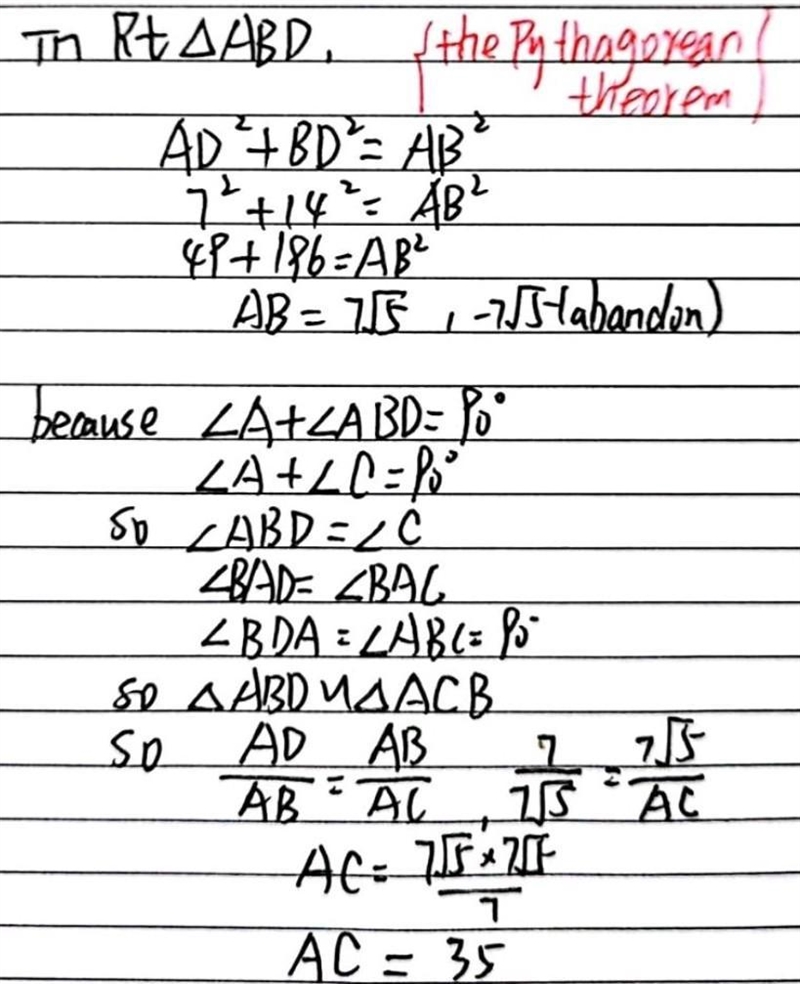 In Rt △ABD, {the Pythagorean
theorem}
AD²+BD²=AB²
7²+14²=AB²
49+196=AB²
AB=7√5, -7√5 (abandon)
because ∠A+∠ABD=90°
∠A+∠C=90°
so ∠ABD=∠C
∠BAD=∠BAC
∠BDA=∠ABC=90°
so △ABD∽△ACB
so AD/AB=AB/AC, 7/7√5=7√5/AC
AC=7√5×7√5/7
AC=35